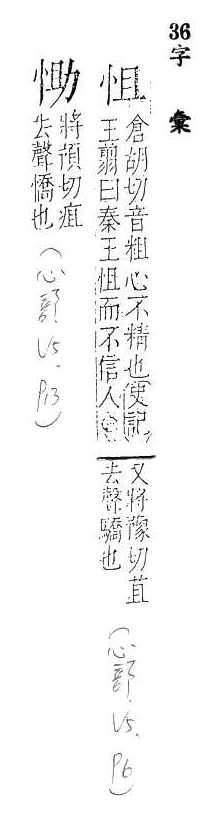 36字 彙
怚
倉胡切音粗心不精也史記
王翦曰秦王怚而不信人
又將豫切苴
去聲驕也
(心部 V5. P6)
將預切疽
去聲憍也
(心部 V5. P13)